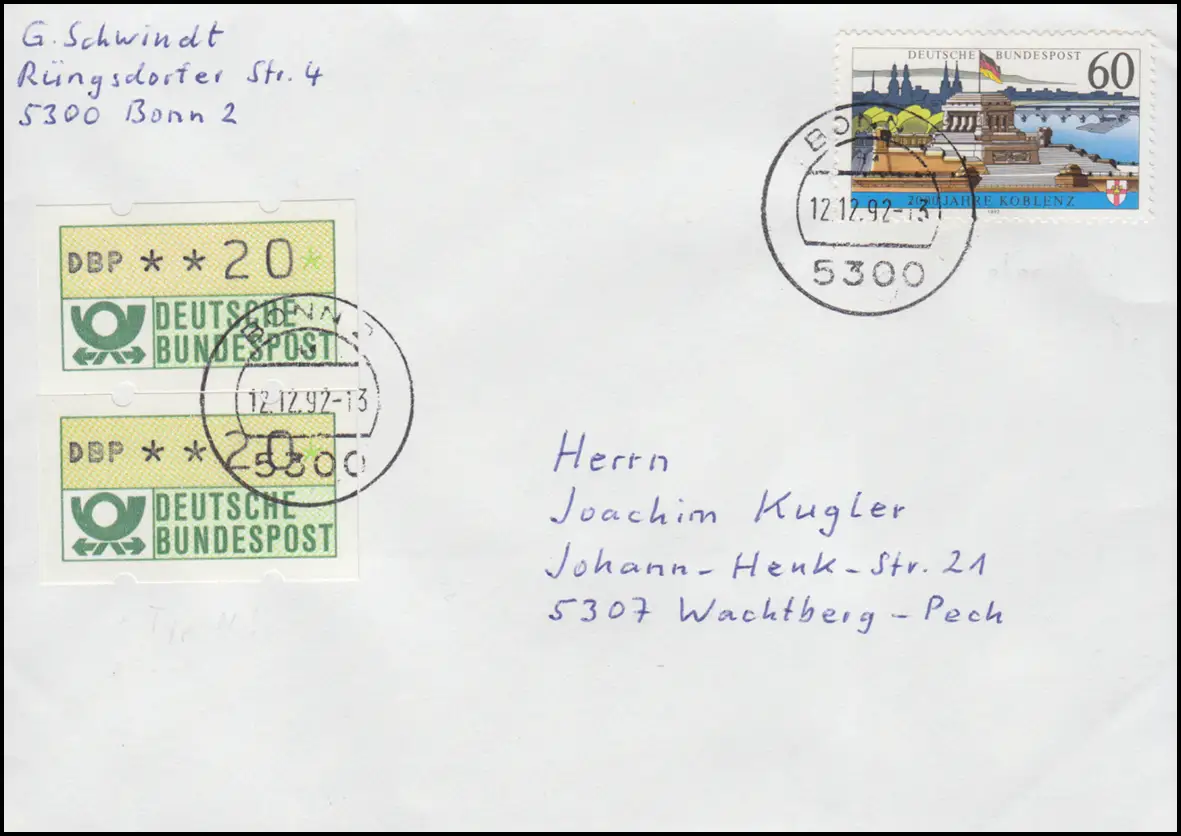 G. Schwindt
Rüngsdorfer Str. 4
5300 Bonn 2
DEUTSCHE BUNDESPOST
60
2000 JAHRE KOBLENZ
1992
BONN
12.12.92-13
5300
DBP **20*
DEUTSCHE
BUNDESPOST
BONN 2
12.12.92-13
5300
DBP **20*
DEUTSCHE
BUNDESPOST
Herrn
Joachim Kugler
Johann-Henk-Str. 21
5307 Wachtberg-Pech